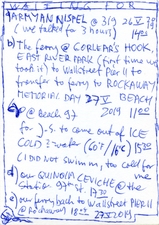 a) ARTMAN NISPEL @ 3/9 26 V 78
(we talked for 3 hours) 1400
b) The ferry @ CORLEAR'S HOOK,
EAST RIVER PARK (first time we
took it) to Wallstreet Pier 11 to
transfer to ferry to ROCKAWAY
MEMORIAL DAY 27 V BEACH
c) @ Beach 97 2019 1100
for J.S. to come out of ICE
COLD water (60°F/16°C) 1520
(I DID NOT SWIM, too cold for me)
d) our QUINOIA CEVICHE @ the
Station 97th St. 1730
e) our ferry back to Wallstreet Pier 11
@ Rockaway 1820 27 V 2019